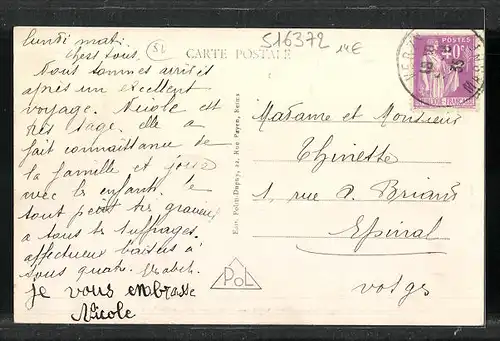 Lundi matin
Chers tous,
Nous sommes arrivés
après un excellent
voyage. Nicole est
très sage. elle a
fait connaissance de
la famille et joue
avec les enfants. le
tout petit très gracieux
a tous les suffrages.
affectueux baisers à
vous quatre.
je vous embrasse
Nicole
CARTE POSTALE
51
516372
14€
Edit. Pol
Rue Payen, Reims
PoL
POSTES
Madame et Monsieur
Thinette
1, rue A. Briand
Epinal
Vosges